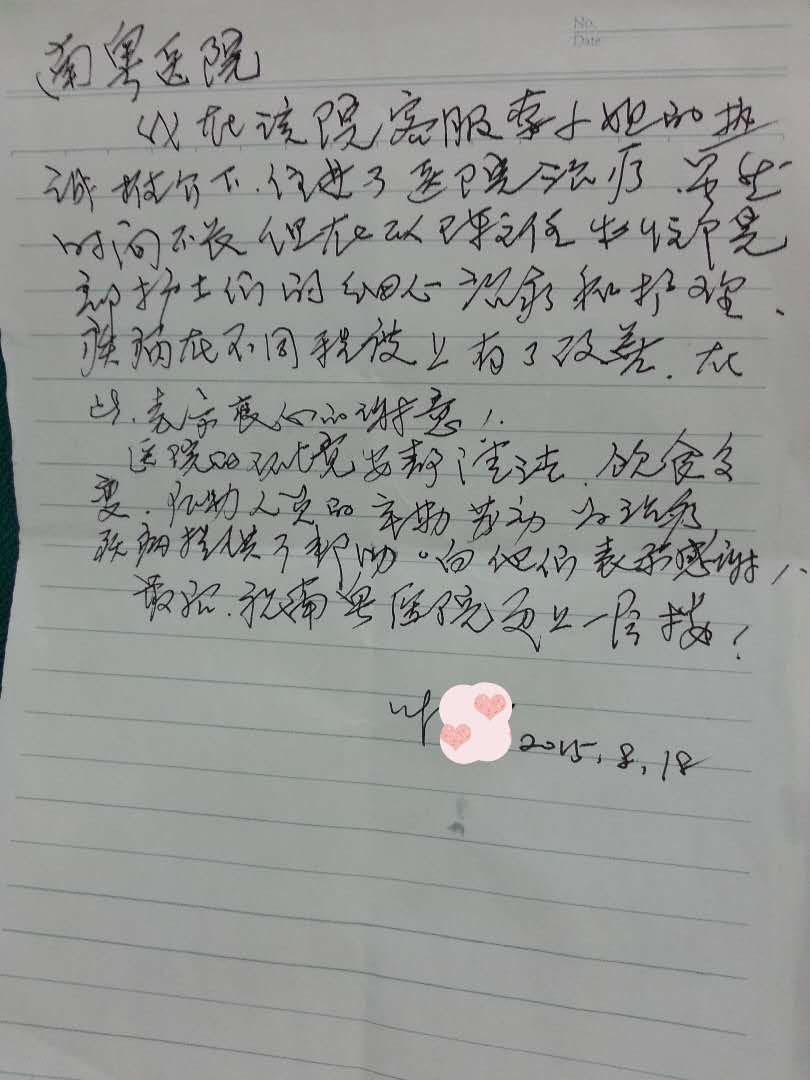 No.
Date
南粤医院
我在该院客服李小姐的热
诚推介下.住进了医院治疗.虽然
时间不长但在以陈主任
护士们的细心治疗和护理.
疾病在不同程度上有了改善.在
此.表示衷心的谢意!
医院的环境安静清洁.饮食多
变.辅助人员的辛勤劳动为治疗
疾病提供了帮助。向他们表示感谢!
最后.祝南粤医院更上一层楼!
叶
2015.8.18